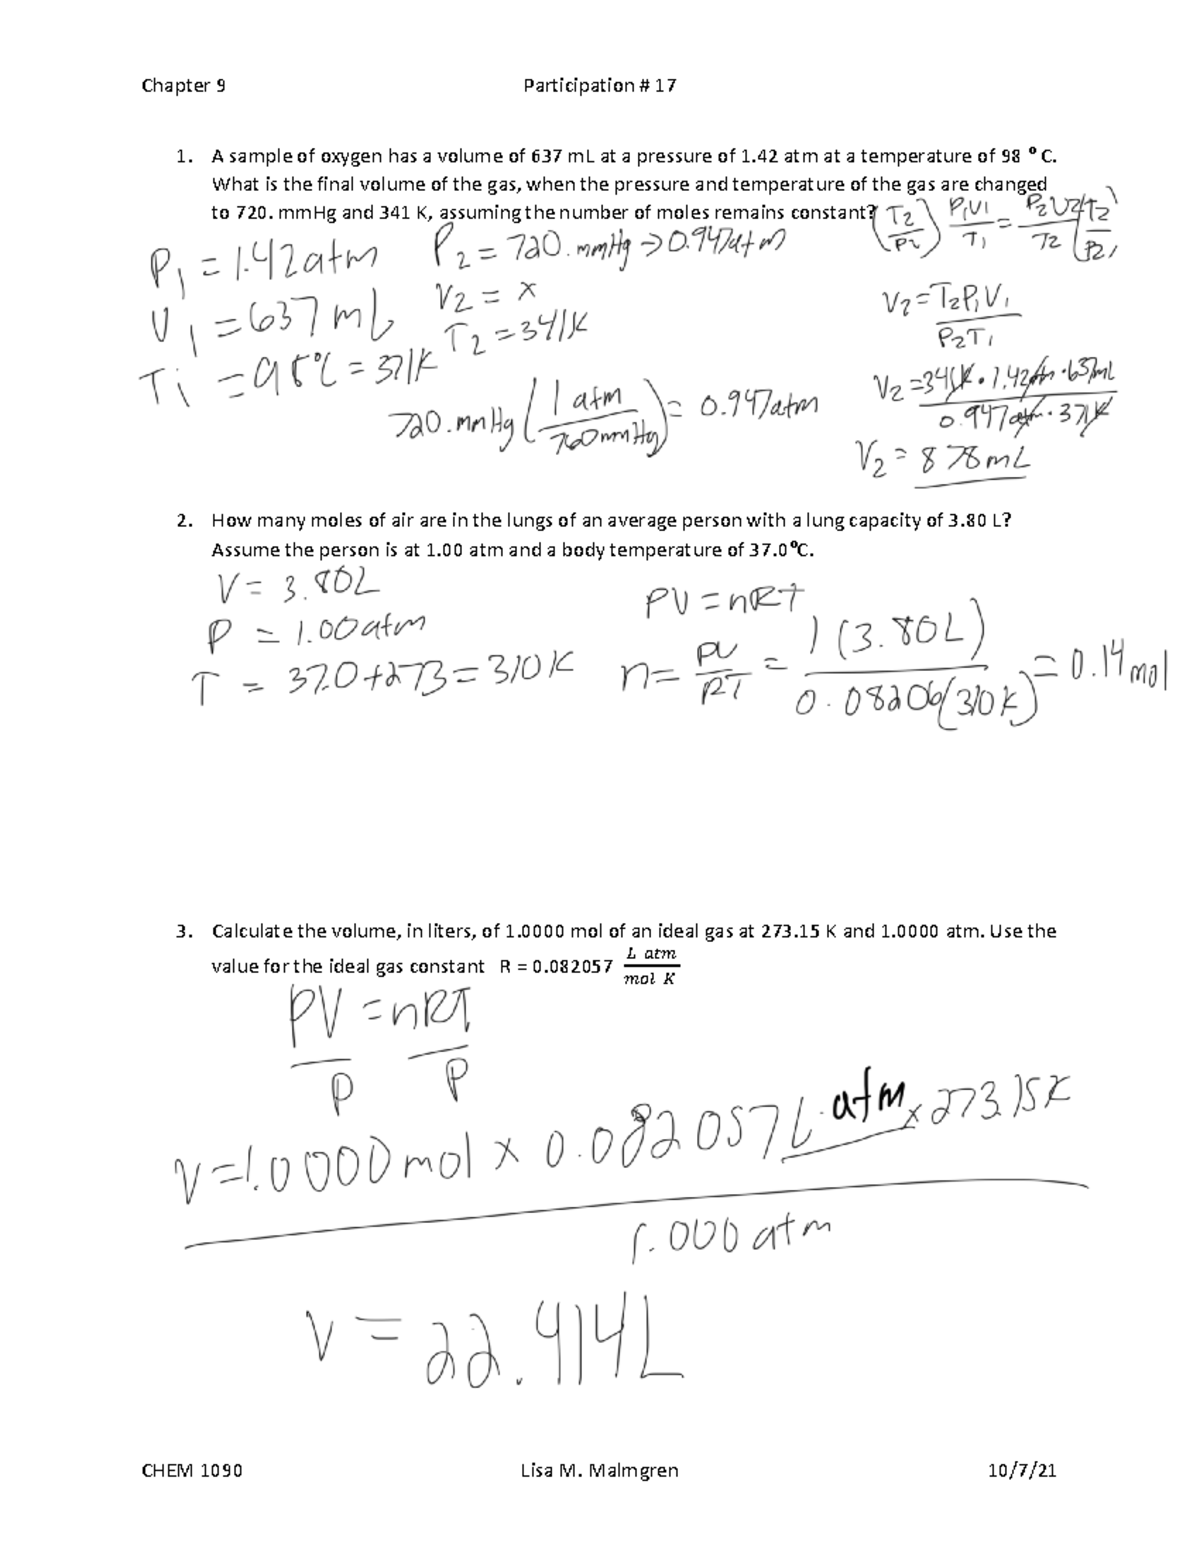 Chapter 9 Participation # 17
1. A sample of oxygen has a volume of 637 mL at a pressure of 1.42 atm at a temperature of 98 ⁰ C.
What is the final volume of the gas, when the pressure and temperature of the gas are changed
to 720. mmHg and 341 K, assuming the number of moles remains constant?
(T2/P2) P1V1/T1 = P2V2/T2 (T2/P2)
P1 = 1.42 atm P2 = 720. mmHg → 0.947 atm
V1 = 637 mL V2 = x
Ti = 98°C = 371K T2 = 341K
V2 = T2P1V1/P2T1
720. mmHg (1 atm/760 mmHg) = 0.947 atm
V2 = 341K • 1.42 atm • 637 mL/0.947 atm • 371K
V2 = 878 mL
2. How many moles of air are in the lungs of an average person with a lung capacity of 3.80 L?
Assume the person is at 1.00 atm and a body temperature of 37.0⁰C.
V = 3.80L
PV = nRT
P = 1.00 atm
T = 37.0 + 273 = 310 K
n = PV/RT = 1 (3.80L)/0.08206(310K) = 0.14 mol
3. Calculate the volume, in liters, of 1.0000 mol of an ideal gas at 273.15 K and 1.0000 atm. Use the
value for the ideal gas constant R = 0.082057 L atm/mol K
PV = nRT
P P
V = 1.0000 mol x 0.082057 L · atm x 273.15K
1.000 atm
V = 22.414L
CHEM 1090 Lisa M. Malmgren 10/7/21